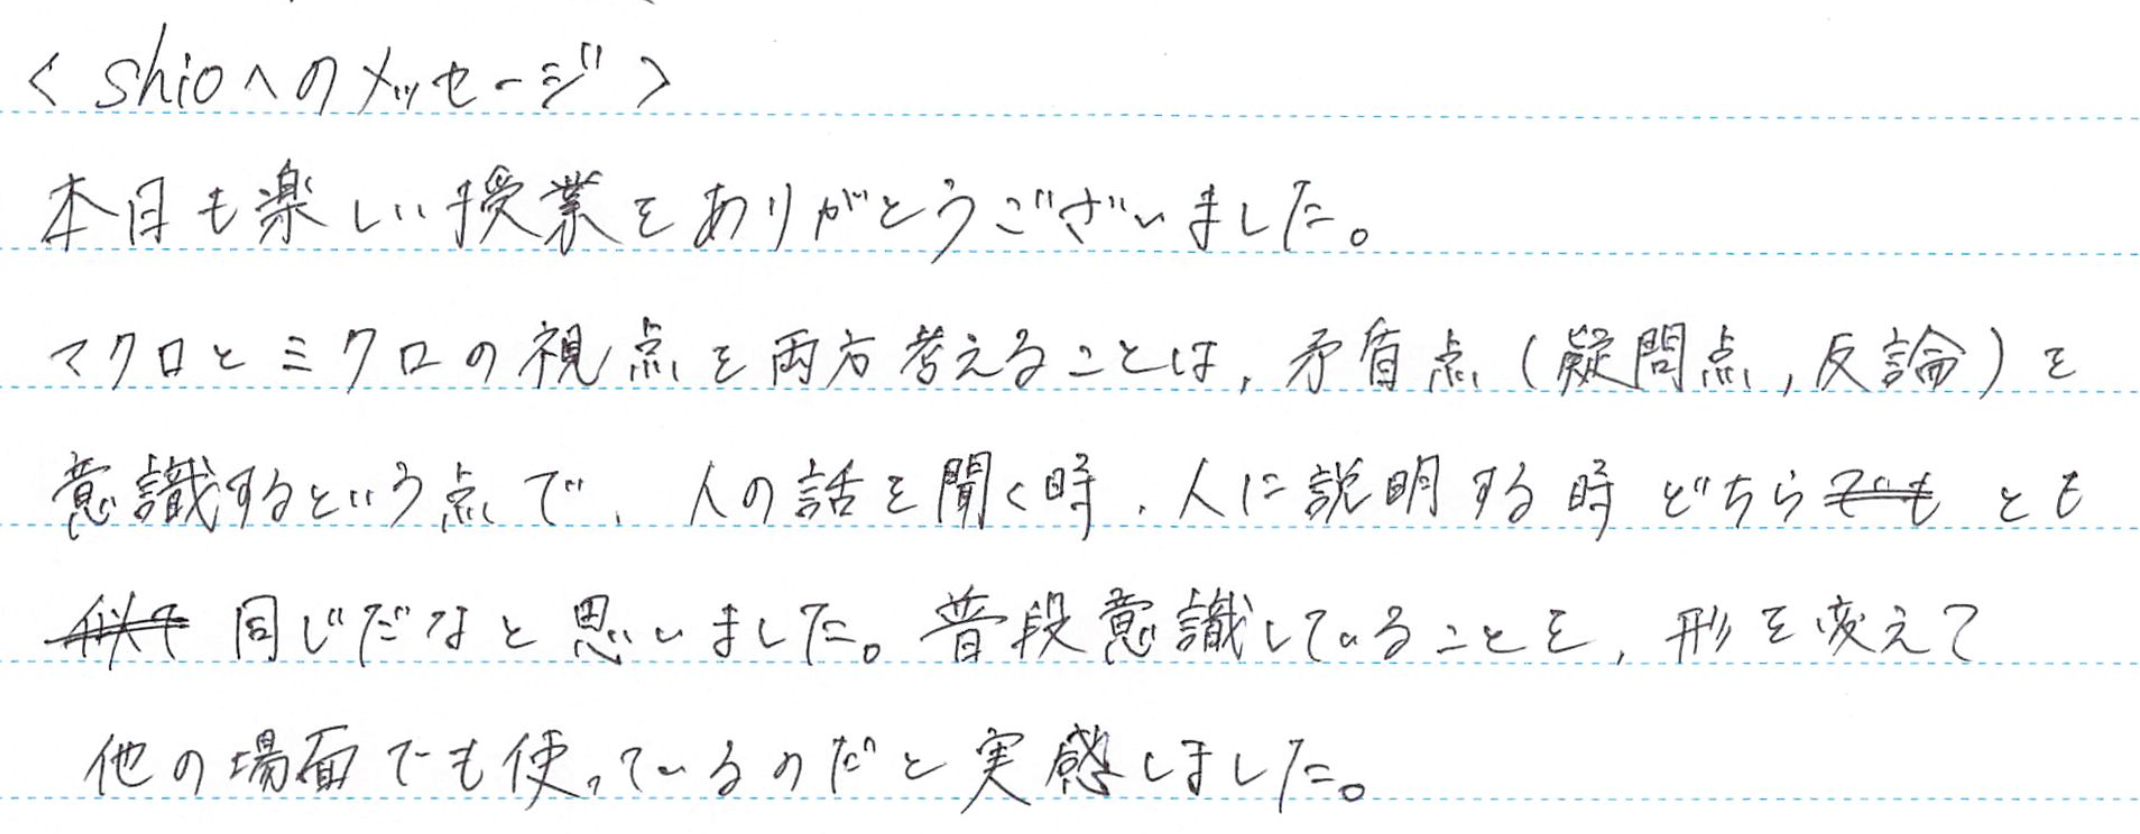 <shioへのメッセージ>
本日も楽しい授業をありがとうございました。
マクロとミクロの視点を両方考えることは,矛盾点(疑問点,反論)を
意識するという点で,人の話を聞く時,人に説明する時どちらでもとも
似て同じだなと思いました。普段意識していることを,形を変えて
他の場面でも使っているのだと実感しました。